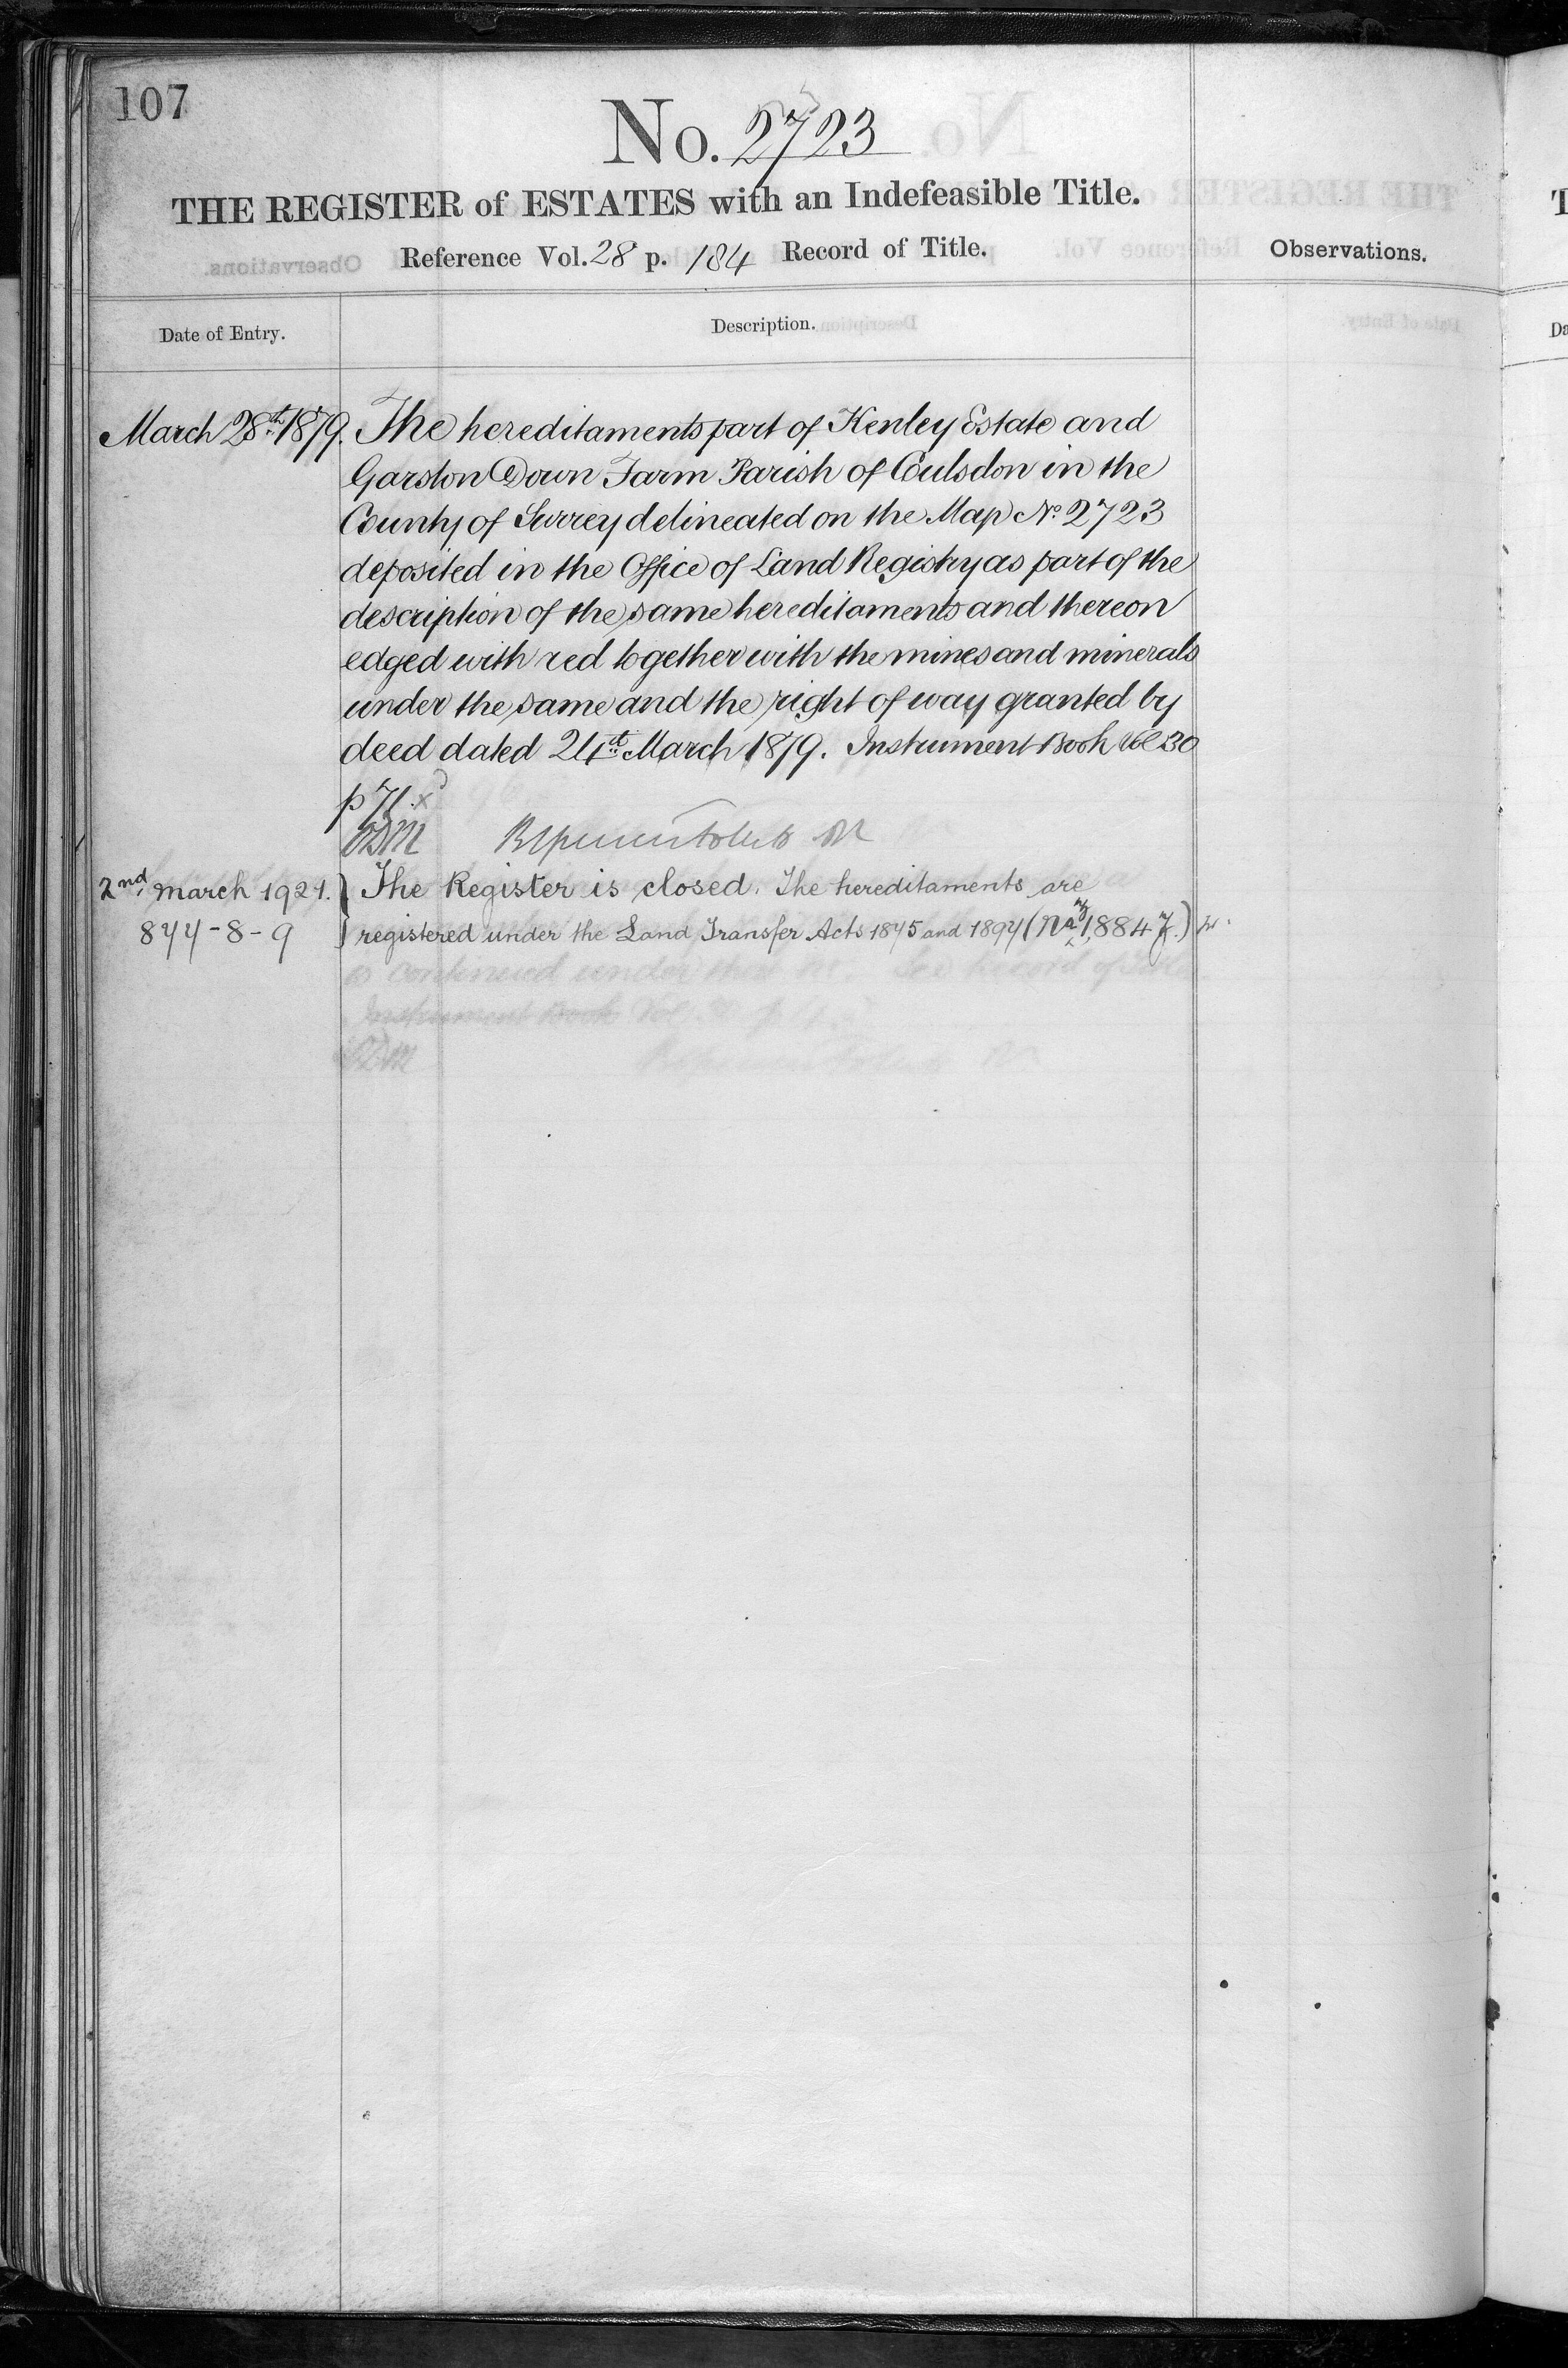 107
No. 2723
THE REGISTER of ESTATES with an Indefeasible Title.
Reference Vol. 28 p. 184 Record of Title.
Observations.
Date of Entry.
Description.
March 28th 1879. The hereditaments part of Kenley Estate and
Garston Down Farm Parish of Coulsdon in the
County of Surrey delineated on the Map No. 2723
deposited in the Office of Land Registry as part of the
description of the same hereditaments and thereon
edged with red together with the mines and minerals
under the same and the right of way granted by
deed dated 24th March 1879. Instrument Book Vol 30
p 71. x
2nd March 1921. The Register is closed. The hereditaments are
877-8-9 registered under the Land Transfer Acts 1875 and 1897